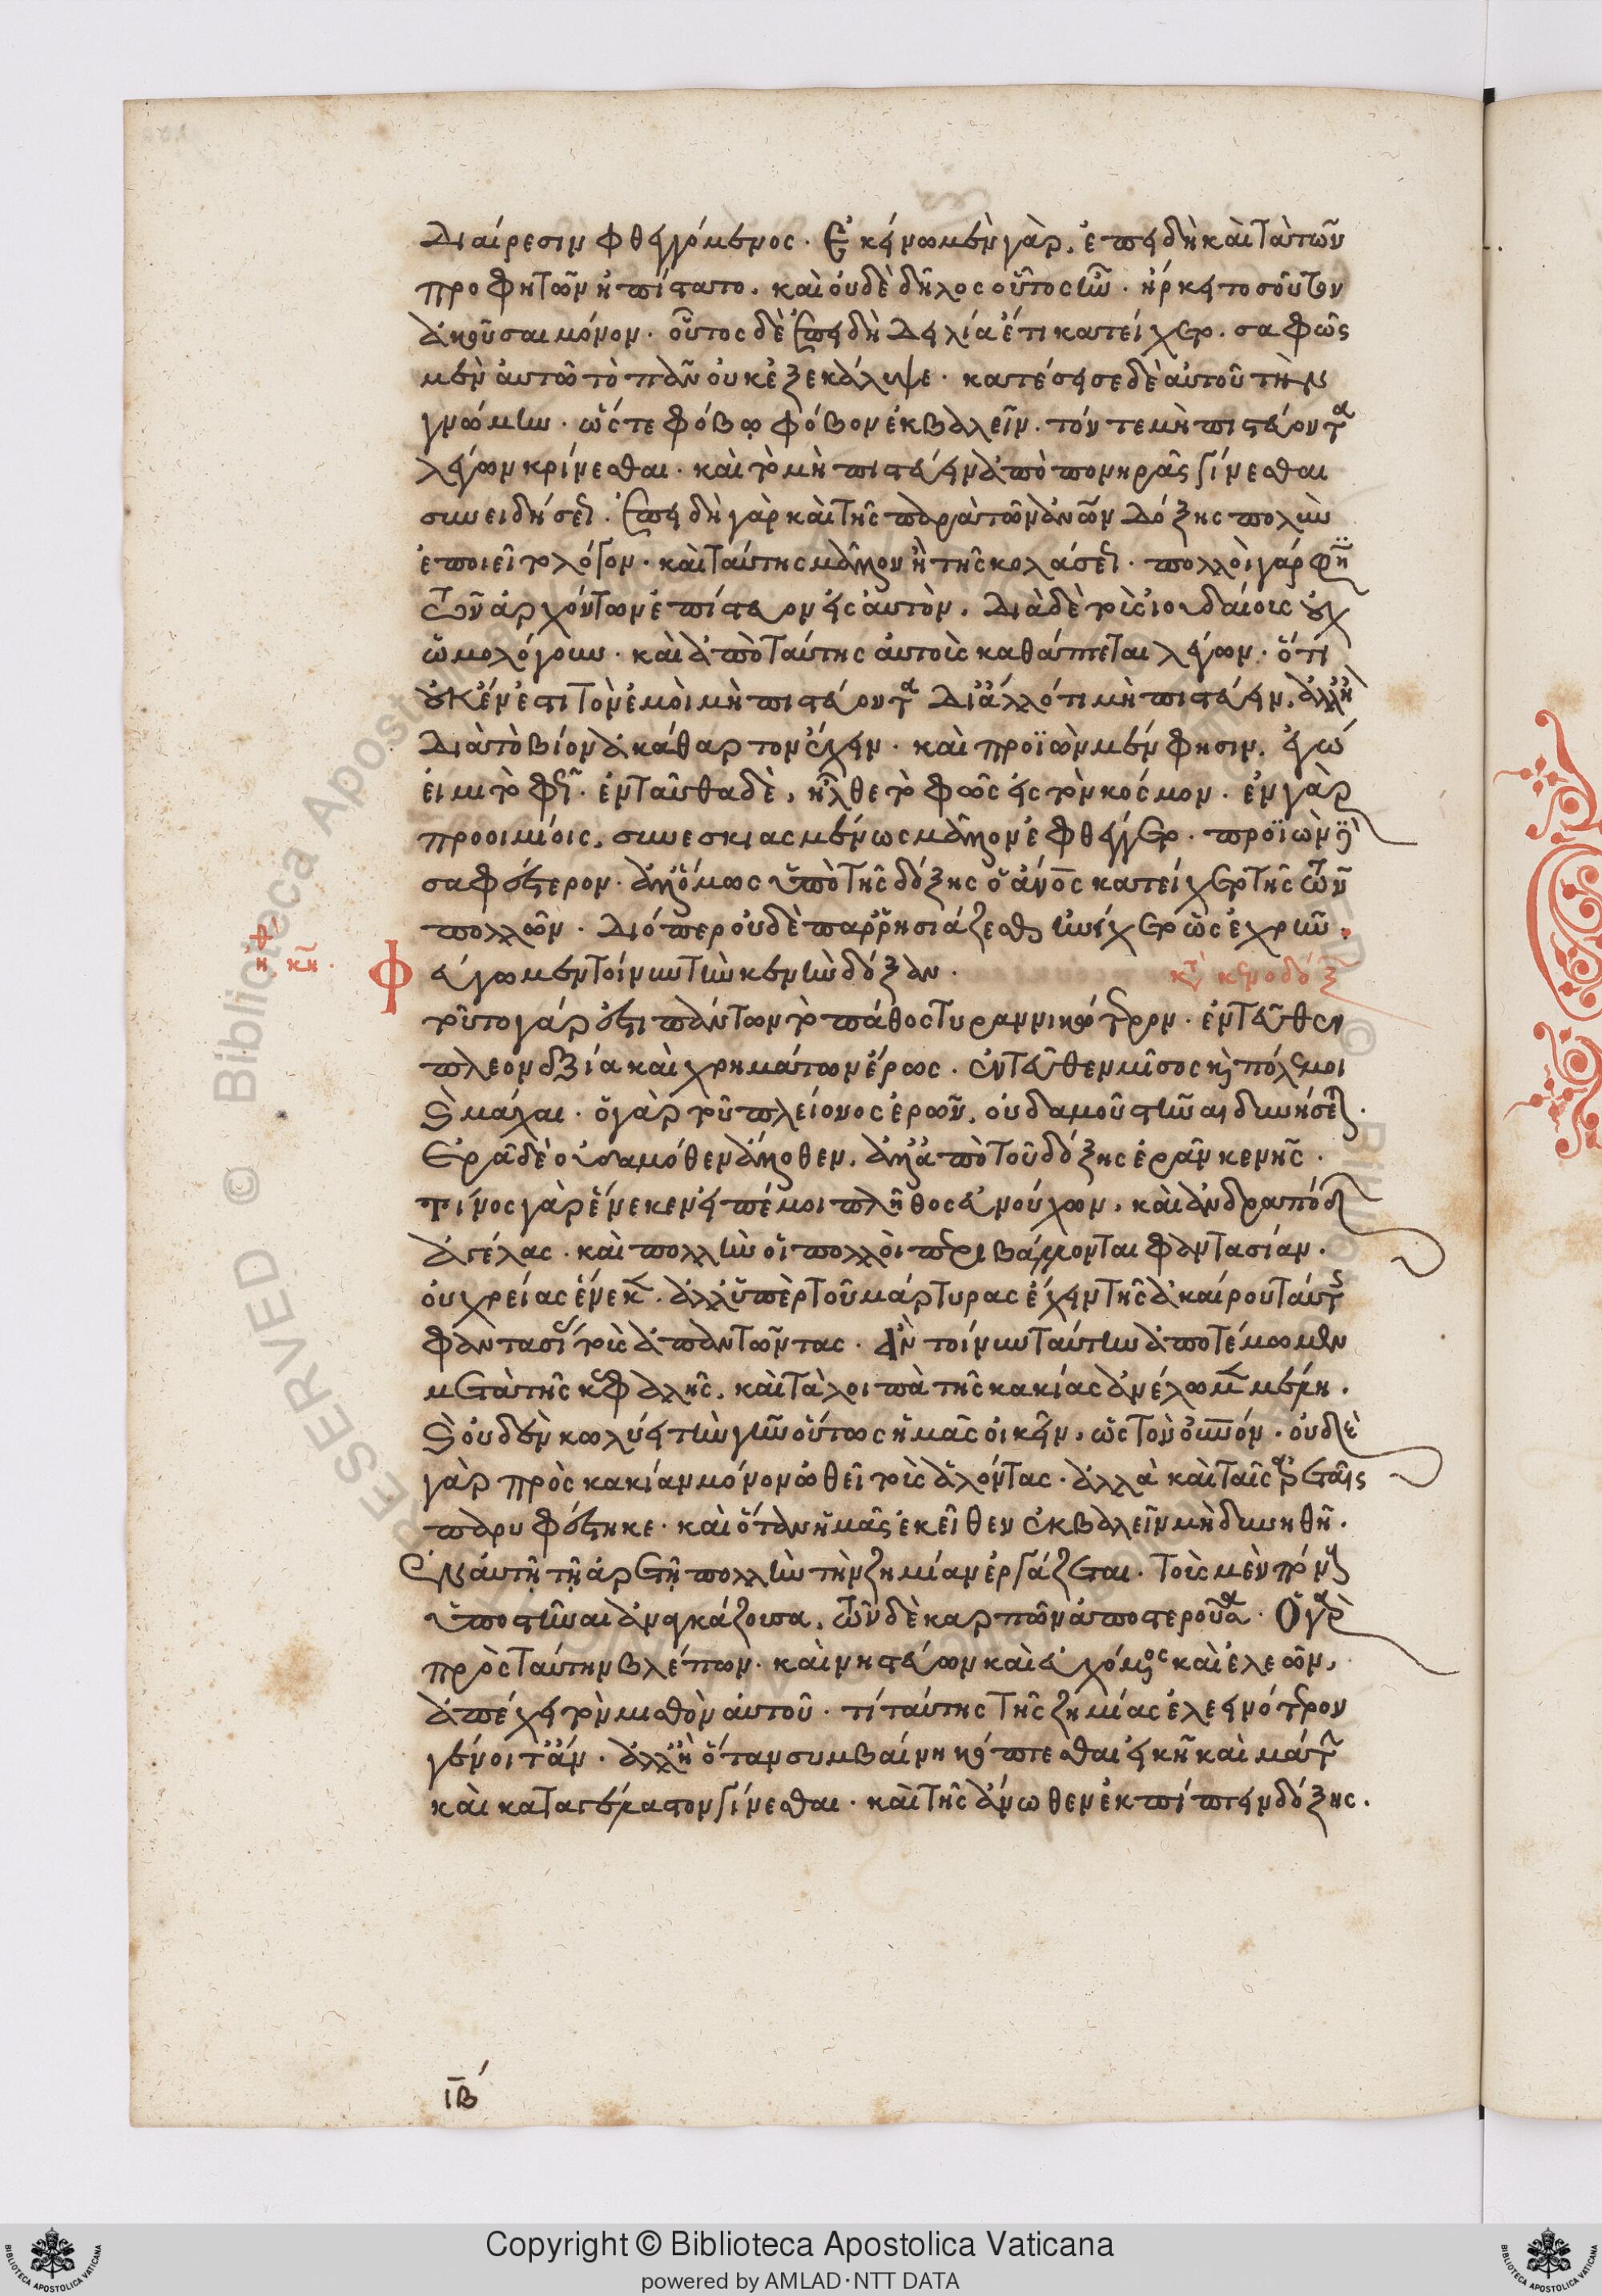 Διαίρεσιν φθεγγόμενος. Ἐκείνω μὲν γὰρ, ἐπειδὴ καὶ τὰ τῶν
προφητῶν ἠπίστατο. καὶ οὐδὲ δῆλος οὗτος ἦν. ἤρκει τοσοῦτον
ἀκοῦσαι μόνον. οὗτος δὲ ἐπειδὴ Δειλία ἔτι κατείχετο. σαφῶς
μὲν αὐτῶ τὸ πᾶν οὐκ ἐξεκάλυψε. κατέσεισε δὲ αὐτοῦ τὴν
γνώμην. ὥστε φόβω φόβον ἐκβαλεῖν. τόν τε μὴ πιστεύοντα
λέγων κρίνεσθαι. καὶ τὸ μὴ πιστεύειν ἀπὸ πονηρᾶς γίνεσθαι
συνειδήσεως. ἐπειδὴ γὰρ καὶ τῆς παρὰ τῶν ἀνων Δόξης πολὺν
ἐποιεῖτο λόγον. καὶ ταύτης μᾶλλον ἢ τῆς κολάσεως. πολλοὶ γάρ φη
τῶν ἀρχόντων ἐπίστευον εἰς αὐτὸν. Διὰ δὲ τοὺς ἰουδαίους οὐχ
ὡμολόγουν. καὶ ἀπὸ ταύτης αὐτοῖς καθάπτεται λέγων. ὅτι
οὐκ ἔνεστι τὸν ἐμοὶ μὴ πιστεύοντα Δι ἄλλό τι μὴ πιστεύειν. ἀλλ ἢ
Διὰ τὸ βίον ἀκάθαρτον ἔχειν. καὶ προϊὼν μέν φησιν. ἐγώ
εἰμι τὸ φῶς. ἐνταῦθα δὲ, ἦλθε τὸ φῶς εἰς τὸν κόσμον. ἐν γὰρ
προοιμίοις, συνεσκιασμένως μᾶλλον ἐφθέγγετο. προϊὼν δὲ
σαφέστερον. ἀλλ ὅμως ὑπὸ τῆς δόξης ὁ ἀνος κατείχετο τῆς τῶν
πολλῶν. Διόπερ οὐδὲ παρρησιάζεσθαι ἠνείχετο ὡς ἐχρῆν.
ηθ κη. Φεύγωμεν τοίνυν τὴν κενὴν δόξαν. κτ κενοδόξ
τοῦτο γάρ ἐστι πάντων τὸ πάθος τυραννικώτερον. ἐντεῦθεν
πλεονεξία καὶ χρημάτων ἔρως. ἐντεῦθεν μῖσος καὶ πόλεμοι
καὶ μάχαι. ὁ γὰρ τοῦ πλείονος ἐρῶν, οὐδαμοῦ στῆναι δυνήσεται.
Ἐρᾶ δὲ οὐδαμόθεν ἄλλοθεν, ἀλλ ἀπὸ τοῦ δόξης ἐρᾶν κενῆς.
Τίνος γὰρ ἕνεκεν εἰπέ μοι πλῆθος εὐνούχων, καὶ ἀνδραπόδων
ἀγέλας. καὶ πολλὴν οἱ πολλοὶ περιβάλλονται φαντασίαν.
οὐ χρείας ἕνεκεν. ἀλλ ὑπὲρ τοῦ μάρτυρας ἔχειν τῆς ἀκαίρου ταύτης
φαντασίας τοὺς ἀπαντῶντας. Ἂν τοίνυν ταύτην ἀποτέμωμεν
μετὰ τῆς κεφαλῆς, καὶ τὰ λοιπὰ τῆς κακίας ἀνέλωμεν μέλη.
καὶ οὐδὲν κωλύει τὴν γῆν οὕτως ἡμᾶς οἰκεῖν, ὡς τὸν οὐνόν. οὐδὲ
γὰρ πρὸς κακίαν μόνον ὠθεῖ τοὺς ἁλόντας. ἀλλὰ καὶ ταῖς ἀρεταῖς
παρυφέστηκε. καὶ ὅταν ἡμᾶς ἐκεῖθεν ἐκβαλεῖν μὴ δυνηθῆ.
Ἐν αὐτῆ τῆ ἀρετῆ πολλὴν τὴν ζημίαν ἐργάζεται. τοὺς μὲν πόνους
ὑποστῆναι ἀναγκάζουσα, τῶν δὲ καρπῶν ἀποστεροῦσα. Ὁ γὰρ
πρὸς ταύτην βλέπων. καὶ νηστεύων καὶ εὐχόμενος καὶ ἐλεῶν,
ἀπέχει τὸν μισθὸν αὐτοῦ. τί ταύτης τῆς ζημίας ἐλεεινότερον
γένοιτ ἄν. ἀλλ ἢ ὅταν συμβαίνη κόπτεσθαι εἰκῆ καὶ μάτην
καὶ καταγέλαστον γίνεσθαι. καὶ τῆς ἄνωθεν ἐκπίπτειν δόξης.
ιβ
Copyright © Biblioteca Apostolica Vaticana
powered by AMLAD·NTT DATA